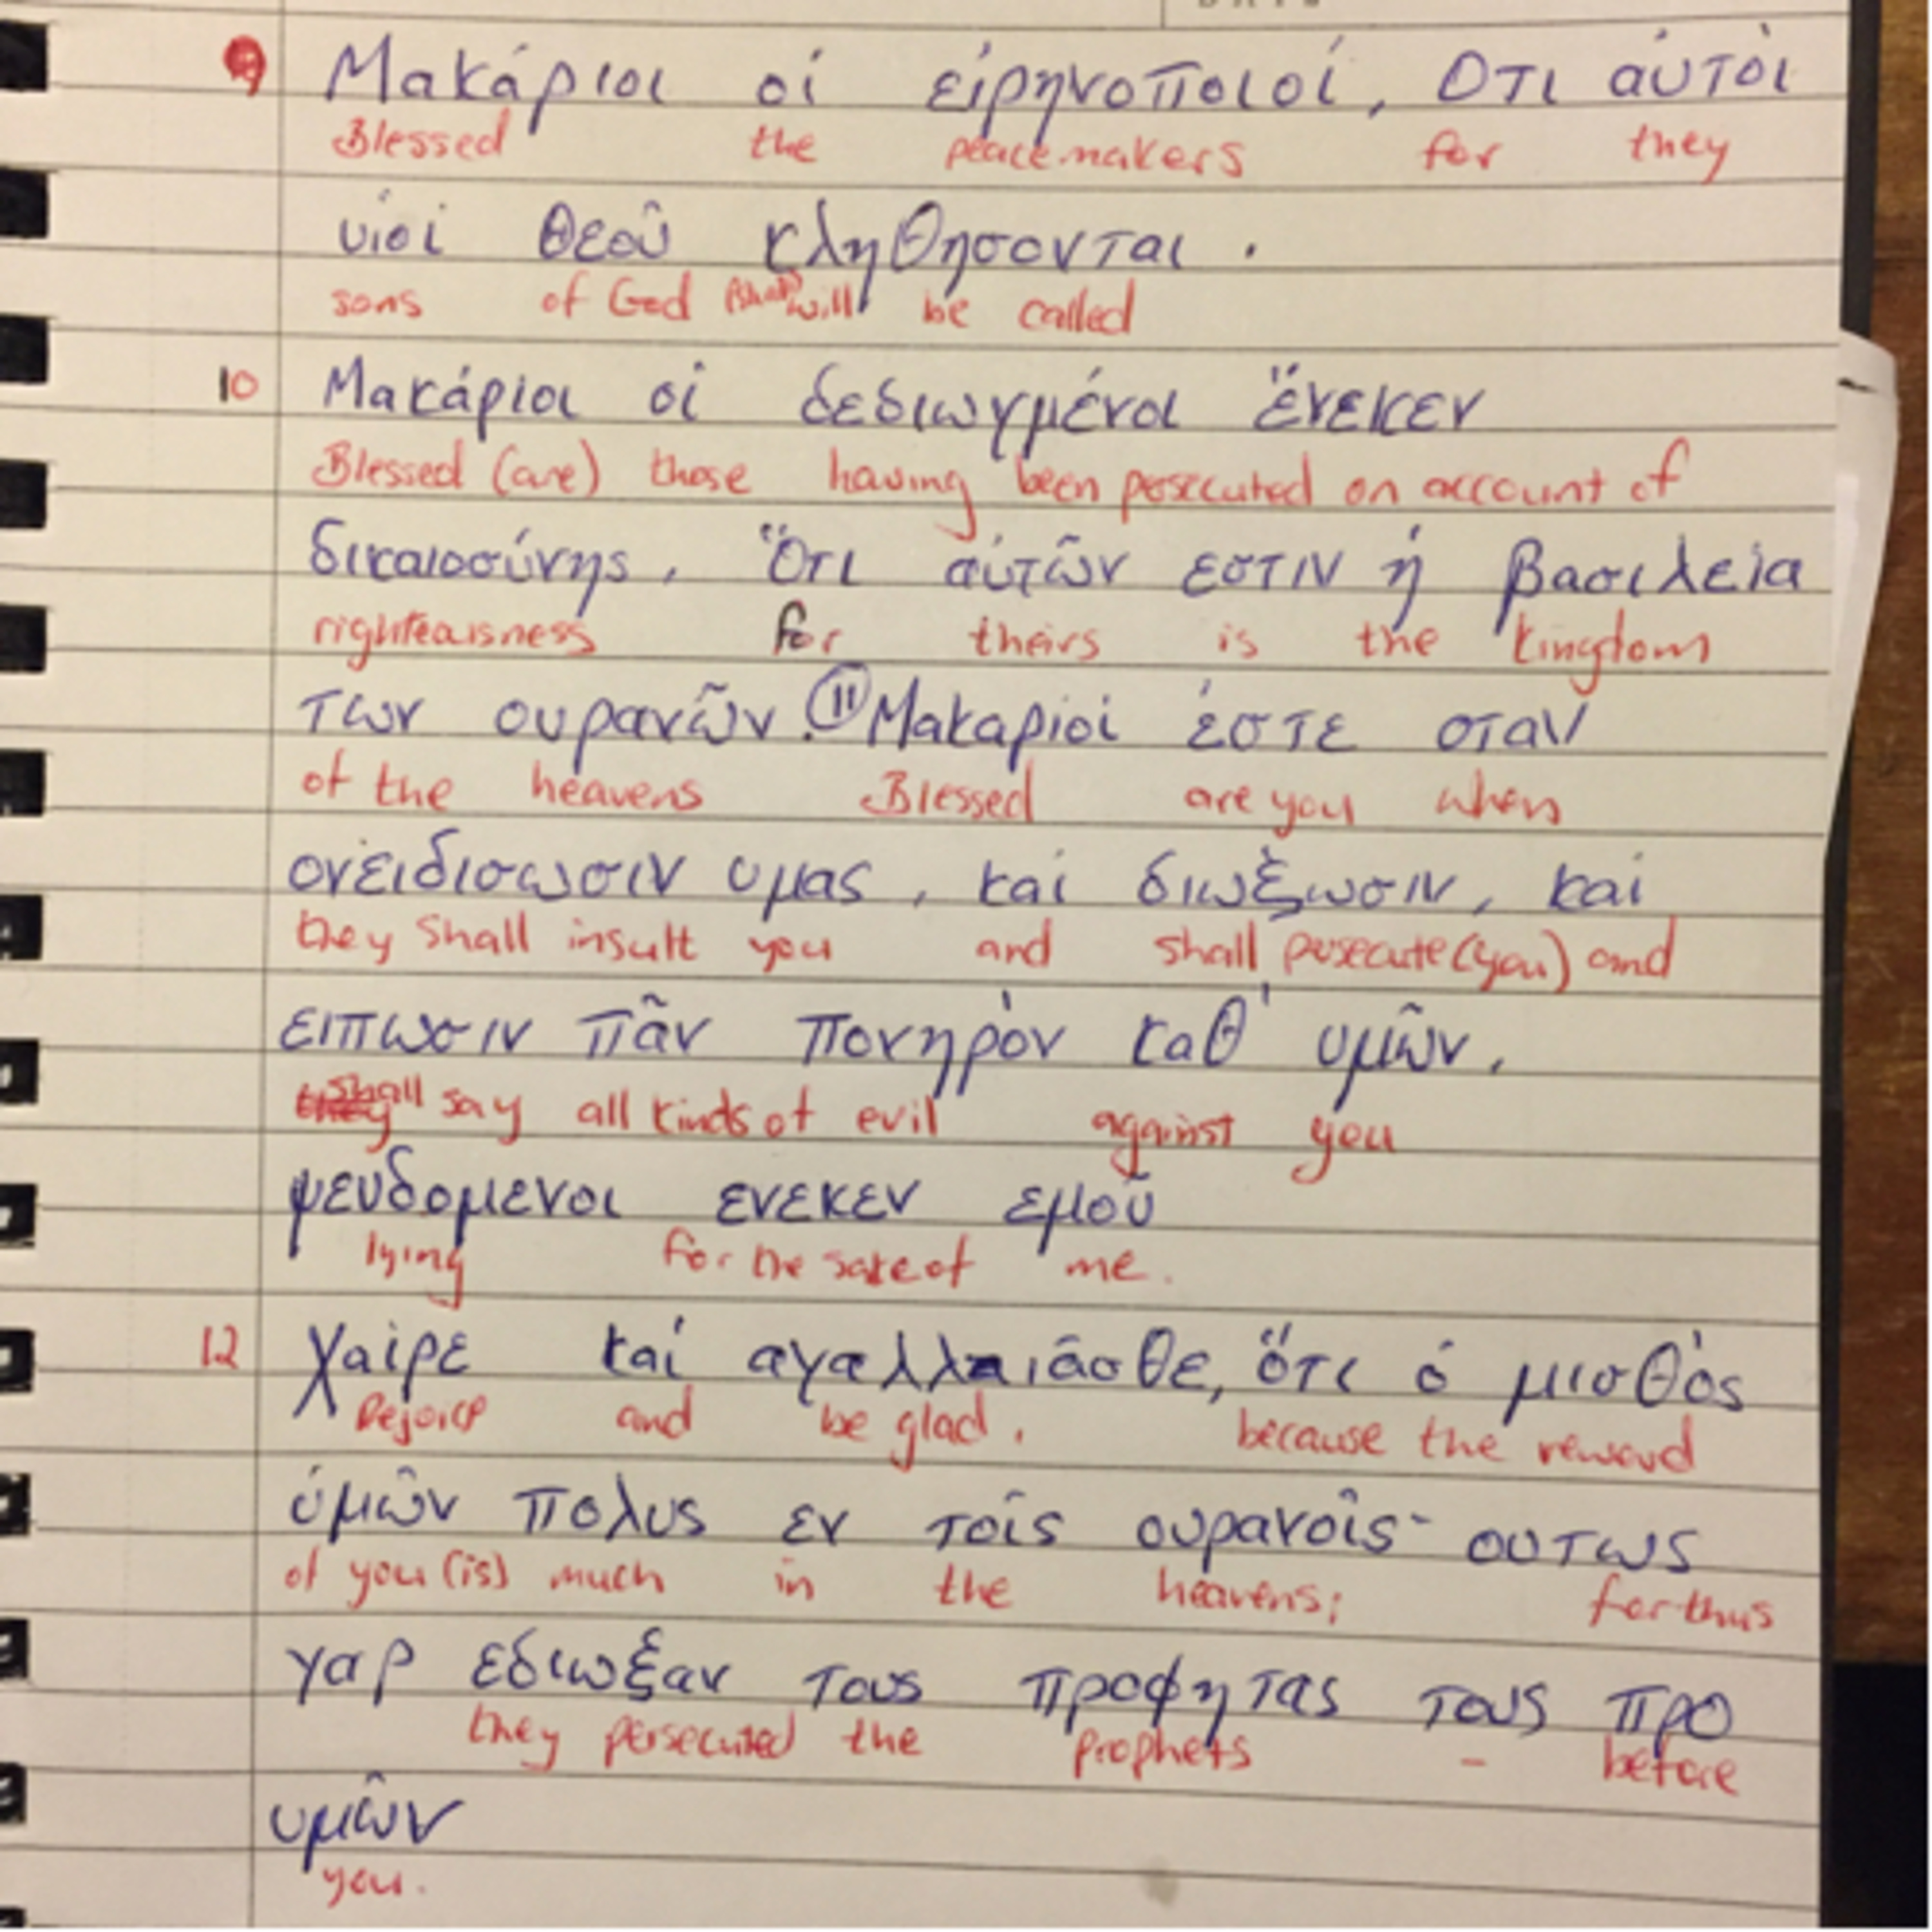 9 Μακάριοι οἱ εἰρηνοποιοί, Οτι αὐτοὶ
Blessed the peacemakers for they
υἱοὶ Θεοῦ κληθησονται .
sons of God (shall) will be called
10 Μακάριοι οἱ δεδιωγμένοι ἕνεκεν
Blessed (are) those having been persecuted on account of
δικαιοσύνης, Ὅτι αὐτῶν εστιν ἡ βασιλεία
righteousness for theirs is the kingdom
των ουρανῶν. 11 Μακαριοί ἐστε οταν
of the heavens Blessed are you when
ονειδισωσιν υμας, καί διωξωσιν, καί
they shall insult you and shall persecute (you) and
ειπωσιν πᾶν πονηρὸν καθ' υμῶν,
they shall say all kinds of evil against you
ψευδομενοι ενεκεν εμοῦ
lying for the sake of me.
12 Χαίρε καί αγαλλιᾶσθε, ὅτι ὁ μισθὸς
Rejoice and be glad, because the reward
ὑμῶν πολυς εν τοῖς ουρανοῖς- ουτως
of you (is) much in the heavens; for thus
γαρ εδιωξαν τους προφητας τους προ
they persecuted the prophets - before
υμῶν
you.